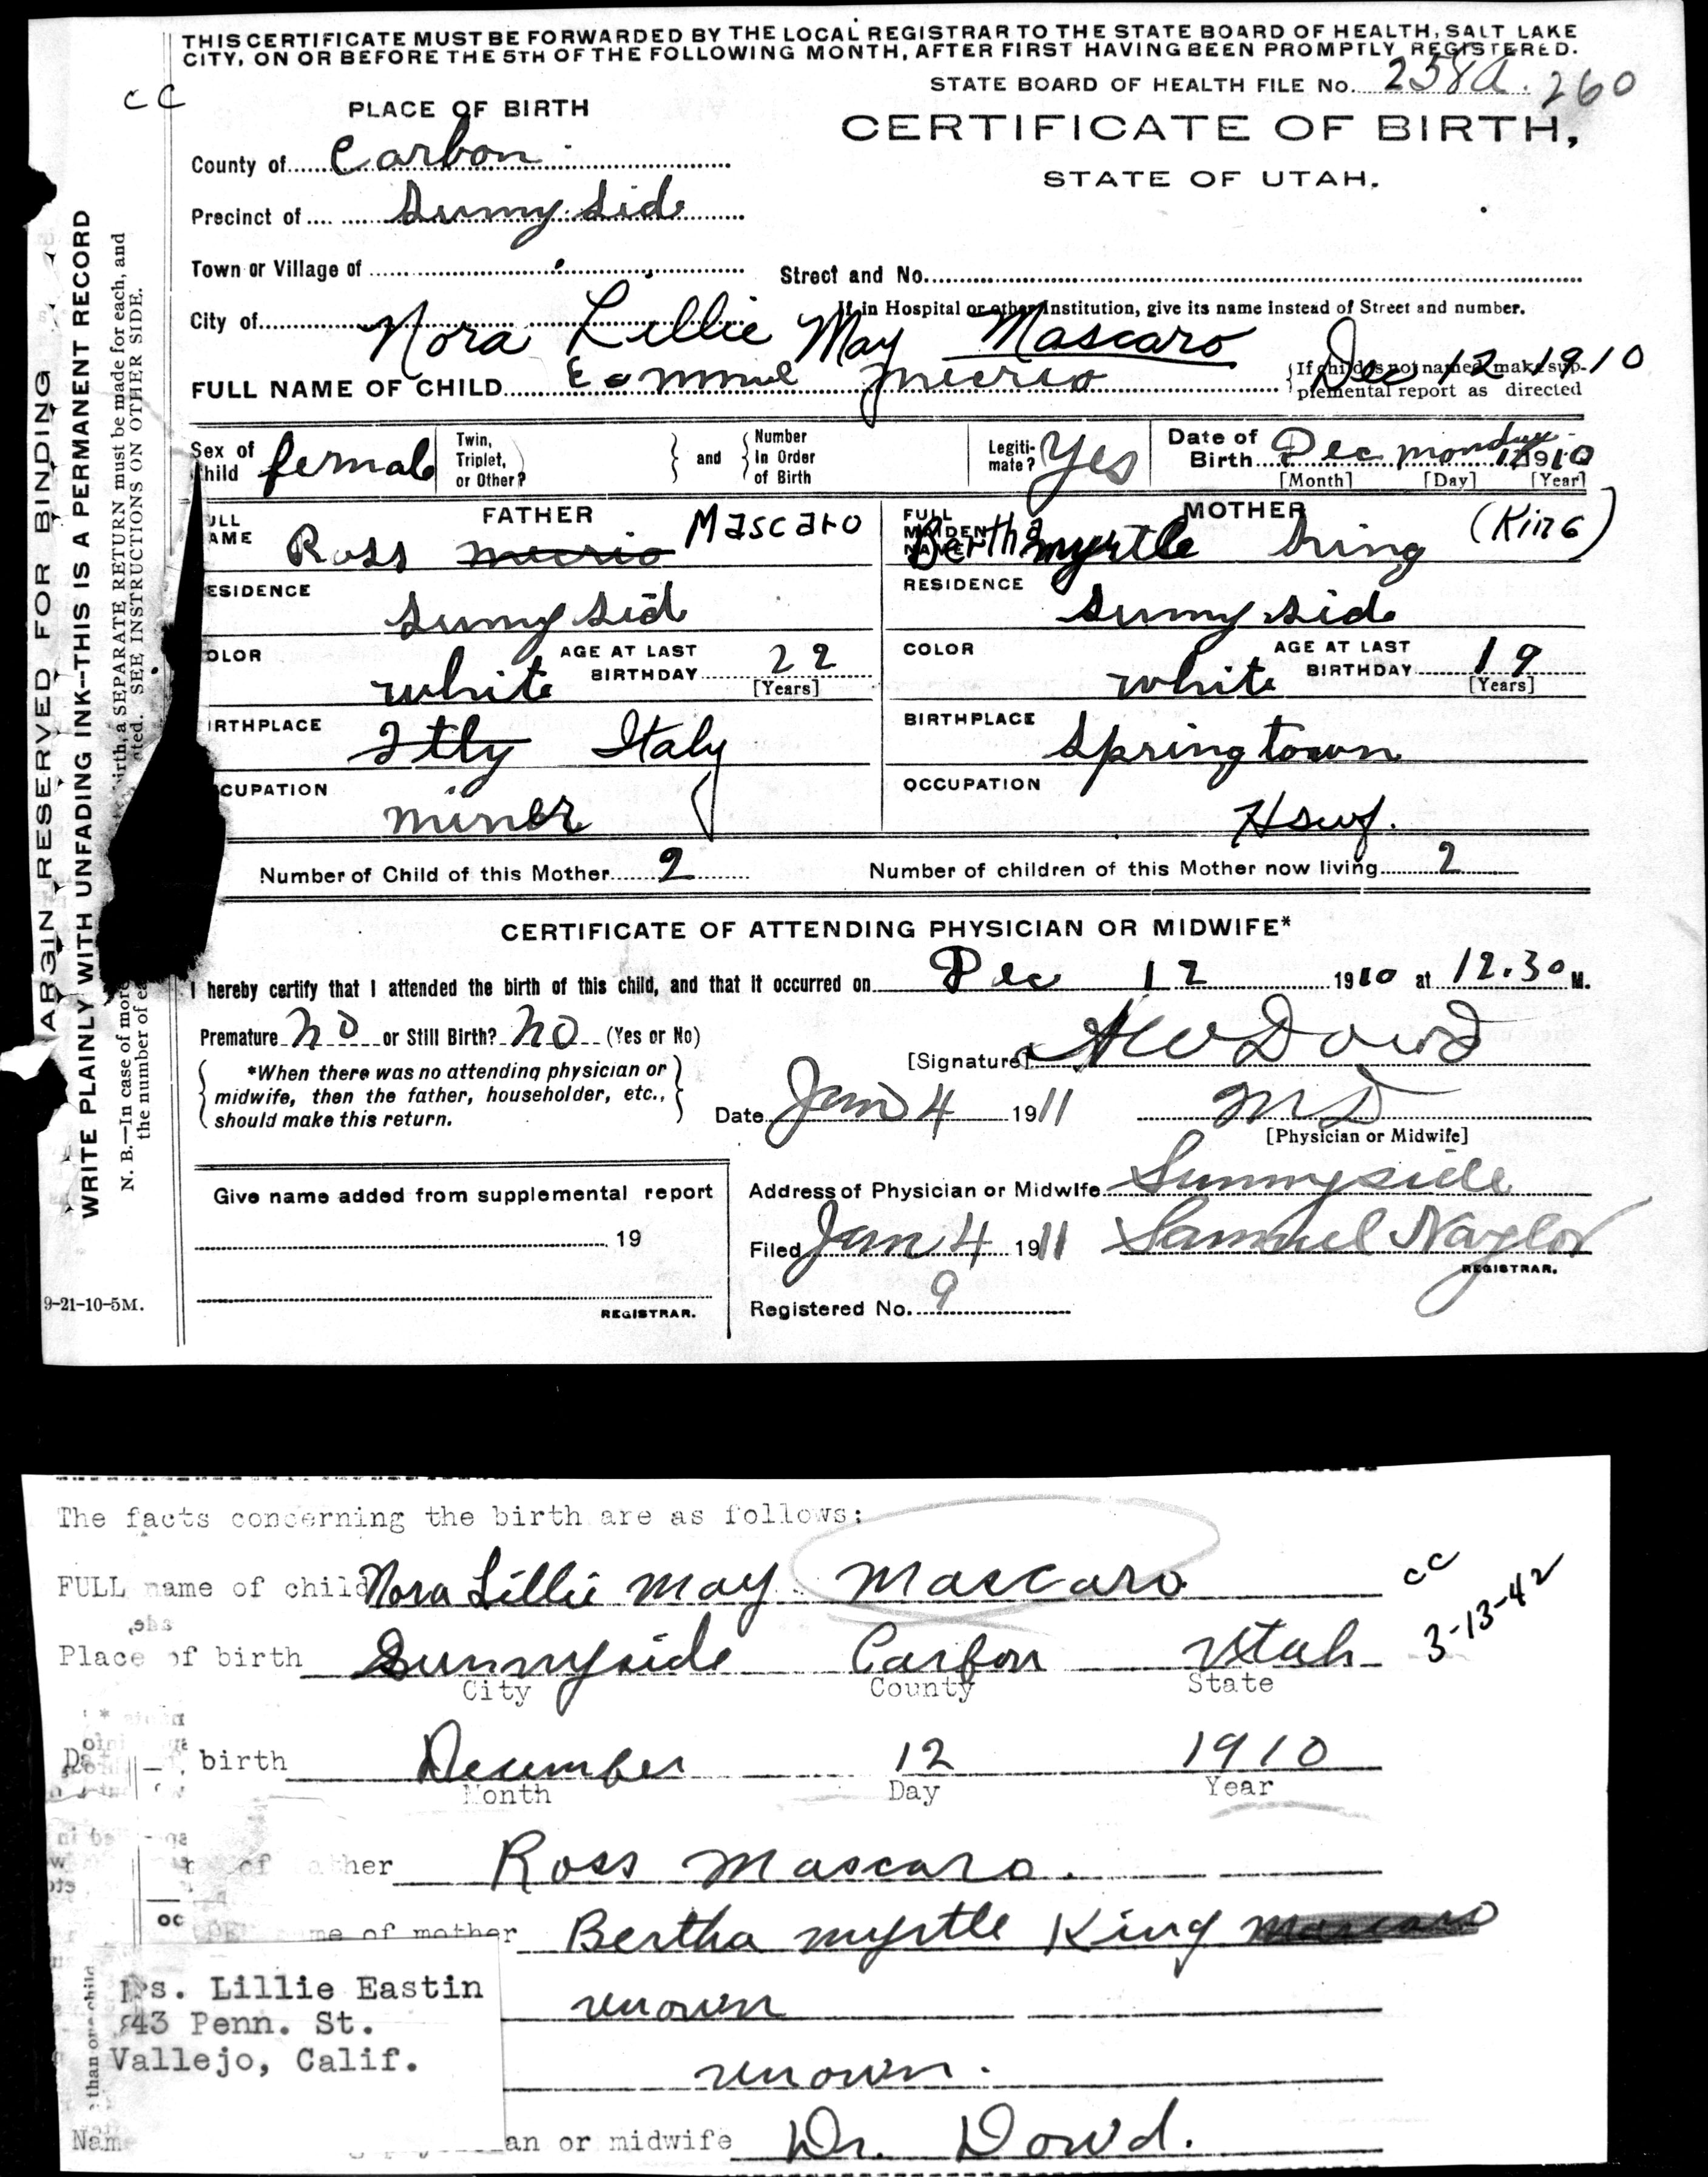 THIS CERTIFICATE MUST BE FORWARDED BY THE LOCAL REGISTRAR TO THE STATE BOARD OF HEALTH, SALT LAKE
CITY, ON OR BEFORE THE 5TH OF THE FOLLOWING MONTH, AFTER FIRST HAVING BEEN PROMPTLY REGISTERED.
STATE BOARD OF HEALTH FILE No. 258a. 260
cc
PLACE OF BIRTH
CERTIFICATE OF BIRTH,
STATE OF UTAH.
County of Carbon
Precinct of Sunny Sid
Town or Village of
Street and No.
City of
If in Hospital or other Institution, give its name instead of Street and number.
Nora Lillie May Mascaro Dec 12 1910
FULL NAME OF CHILD micrio
If child is not named make sup-
plemental report as directed
Sex of Child female
Twin, Triplet, or Other?
and
Number In Order of Birth
Legiti-mate? Yes
Date of Birth Dec monday 12 1910
[Month] [Day] [Year]
FATHER
ULL AME Ross micrio Mascaro
MOTHER
FULL MAIDEN NAME Bertha myrtle King (King)
ESIDENCE Sunny Sid
RESIDENCE Sunny sid
OLOR white AGE AT LAST BIRTHDAY 22 [Years]
COLOR white AGE AT LAST BIRTHDAY 19 [Years]
IRTHPLACE Itly Italy
BIRTHPLACE Springtown
CUPATION miner
OCCUPATION Hswf.
Number of Child of this Mother 2 Number of children of this Mother now living 2
CERTIFICATE OF ATTENDING PHYSICIAN OR MIDWIFE*
I hereby certify that I attended the birth of this child, and that it occurred on Dec 12 1910 at 12.30 M.
Premature no or Still Birth? no (Yes or No)
[Signature] Dowd
*When there was no attending physician or
midwife, then the father, householder, etc.,
should make this return.
Date Jan 4 1911 MD
[Physician or Midwife]
Give name added from supplemental report
Address of Physician or Midwife Sunnyside
19
Filed Jan 4 1911 Samuel Naylor
REGISTRAR.
REGISTRAR.
Registered No. 9
9-21-10-5M.
ARGIN RESERVED FOR BINDING
WRITE PLAINLY WITH UNFADING INK--THIS IS A PERMANENT RECORD
N. B.—In case of more birth, a SEPARATE RETURN must be made for each, and
the number of ea ated. SEE INSTRUCTIONS ON OTHER SIDE.
The facts concerning the birth are as follows:
FULL name of child Nora Lillie May Mascaro
cc
3-13-42
Place of birth Sunnyside Carbon Utah
City County State
birth December 12 1910
Month Day Year
of ather Ross Mascaro.
me of mother Bertha myrtle King Mascaro
s. Lillie Eastin
43 Penn. St.
Vallejo, Calif.
unown
unown.
than one child
Name an or midwife Dr. Dowd.